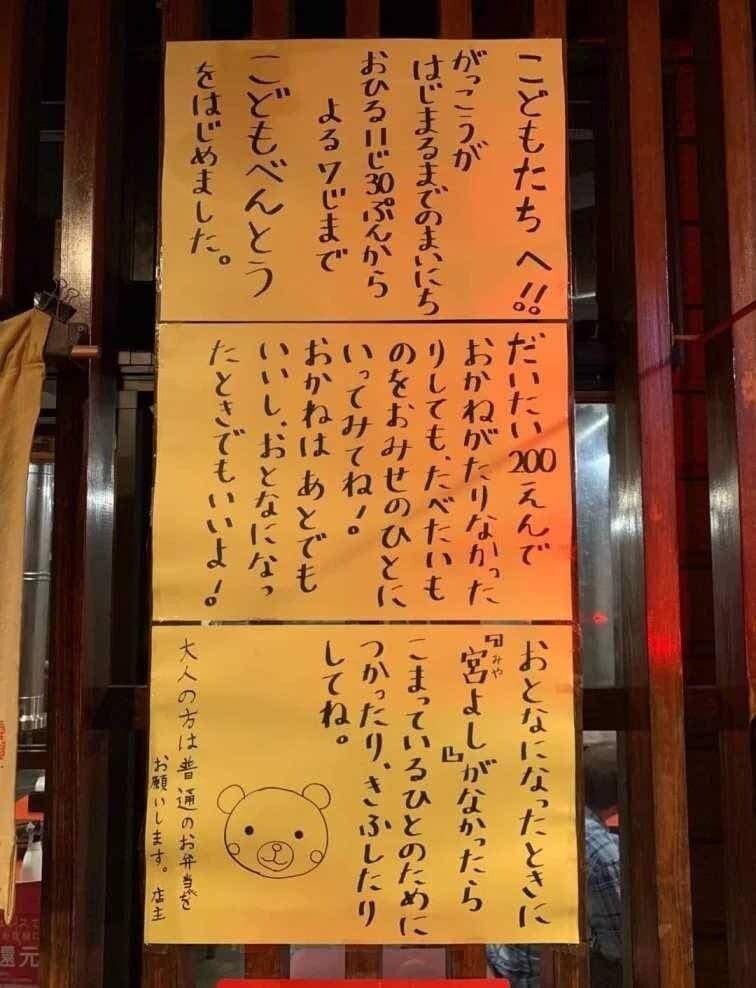 こどもたち へ!!
がっこうが
はじまるまでのまいにち
おひる11じ30ぷんから
よる7じまで
こどもべんとう
をはじめました。
だいたい200えんで
おかねがたりなかった
りしても、たべたいも
のをおみせのひとに
いってみてね!。
おかねは あとでも
いいし、おとなになっ
たときでもいいよ!。
おとなになったときに
みや
『宮よし』がなかったら
こまっているひとのために
つかったり、きふしたり
してね。
大人の方は普通のお弁当を
お願いします。店主
還元